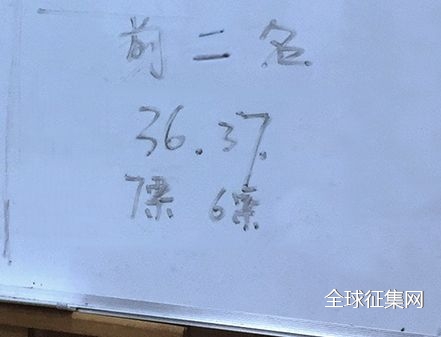 前二名
36.37.
7票 6票
全球征集网